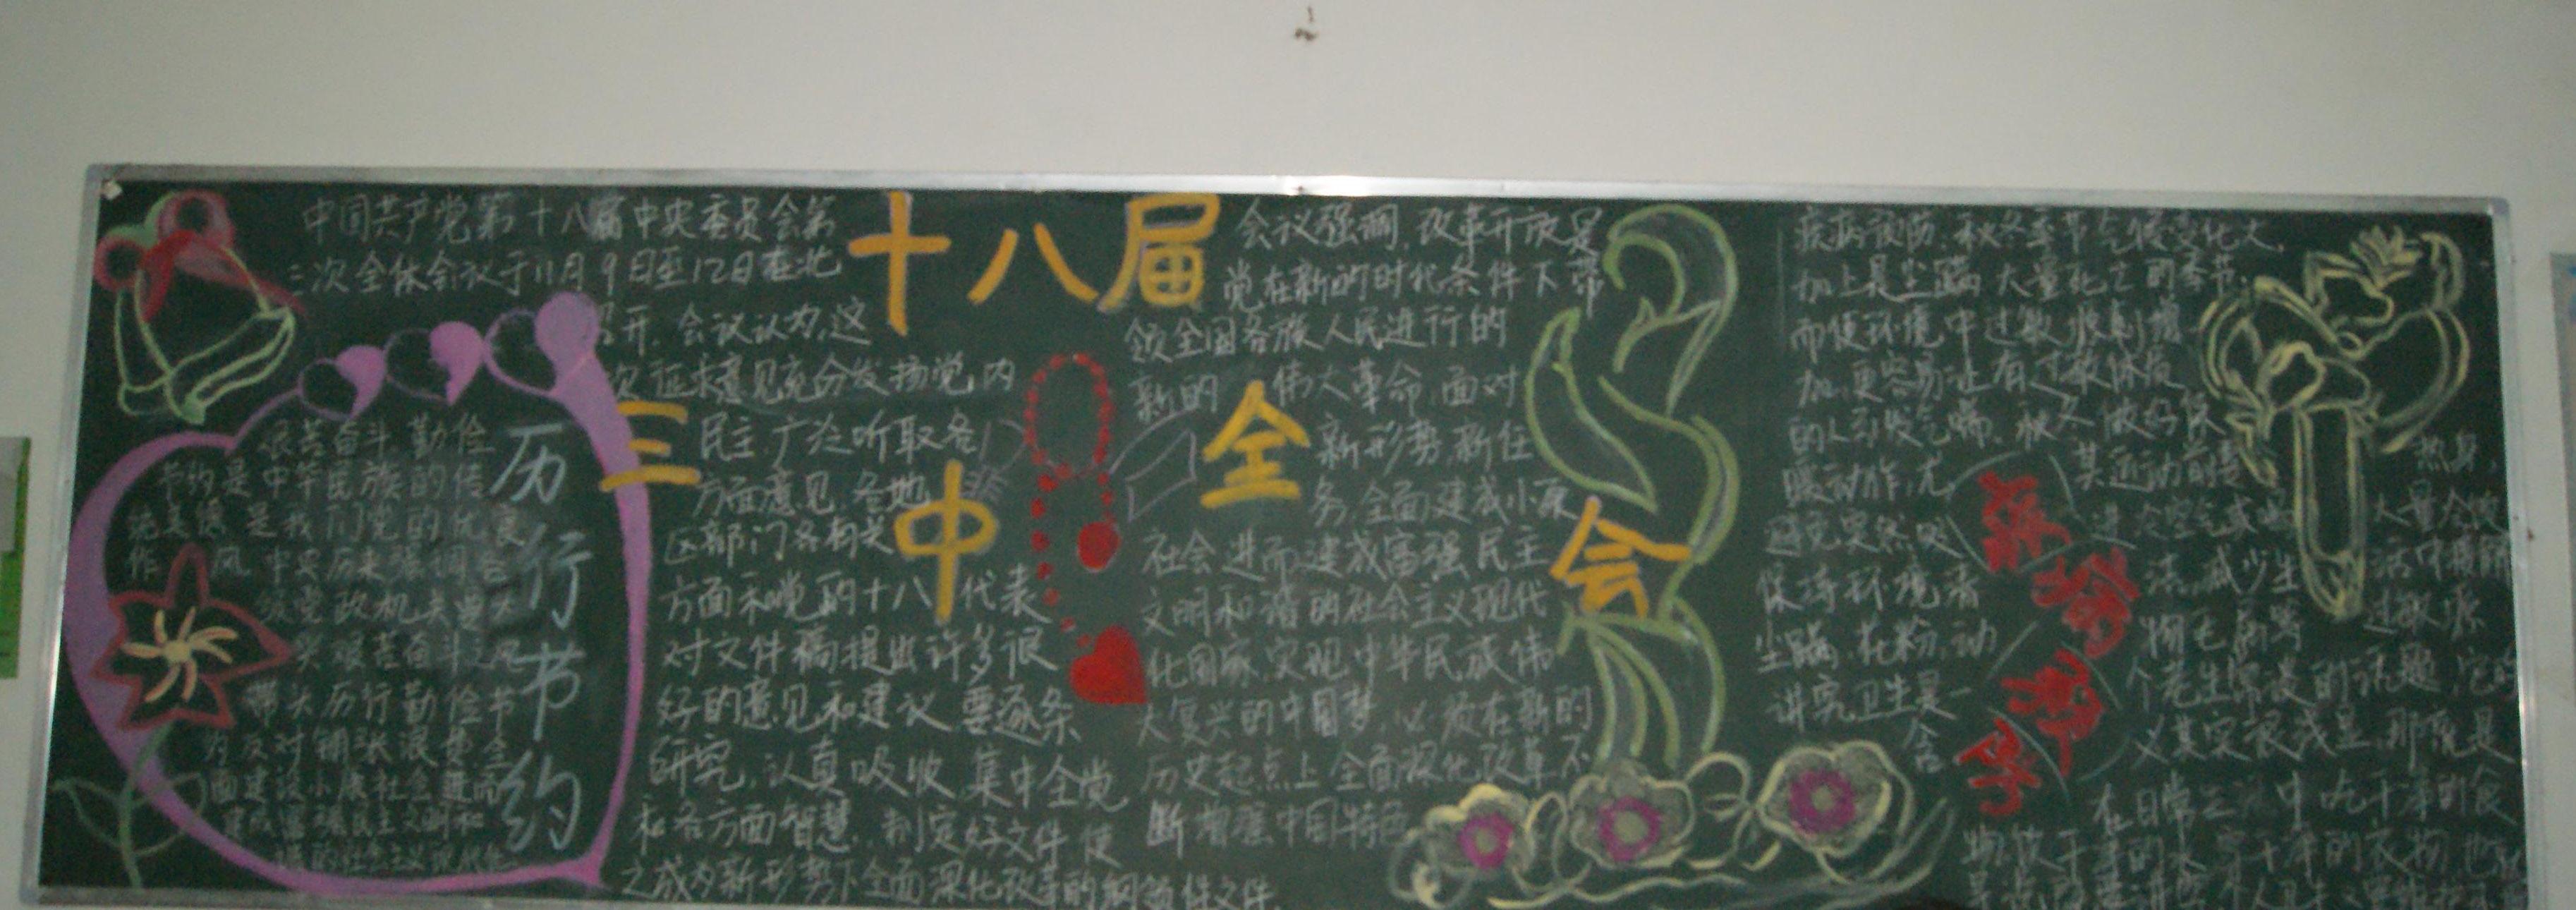 十八届
三中全会
中国共产党第十八届中央委员会第
三次全体会议于11月9日至12日在北
召开.会议认为,这
次征求意见充分发扬党内
民主,广泛听取各
方面意见,各地
区部门各有关
方面和党的十八代表
对文件稿提出许多很
好的意见和建议,要逐条
研究,认真吸收,集中全党
和各方面智慧.制定好文件使
之成为新形势下全面深化改革的纲领性文件.
会议强调,改革开放是
党在新的时代条件下带
领全国各族人民进行的
新的伟大革命,面对
新形势,新任
务,全面建成小康
社会进而建成富强民主
文明和谐的社会主义现代
化国家,实现中华民族伟
大复兴的中国梦,必须在新的
历史起点上全面深化改革不
断增强中国特色
厉行节约
艰苦奋斗勤俭
节约是中华民族的传
统美德是我们党的优良
作风中央历来强调各
级党政机关
艰苦奋斗之风
带头厉行勤俭节
约反对铺张浪费全
面建设小康社会进而
建成富强民主文明和
谐的社会主义现代化
疾病预防
疾病预防:秋冬季节气候变化大,
加上是尘螨大量死亡的季节,
而使环境中过敏原剧增
加,更容易让有过敏体质
的人引发气喘.秋冬做好保
暖动作,尤其运动前要热身,
避免突然吸进
保持环境清洁,减少生活中接触
尘螨,花粉,动物毛屑等过敏源
讲究卫生是一个老生常谈的话题,它的
含义其实很浅显,那就是
在日常生活中吃干净的食
物,饮干净的水,穿干净的衣物,也